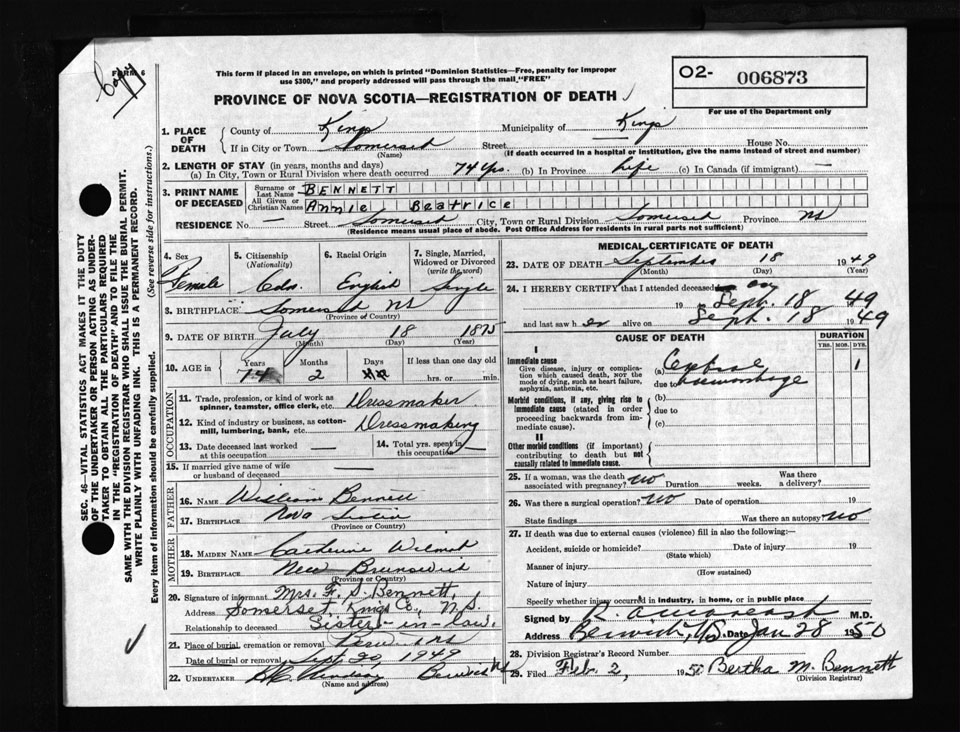 Copy
FORM 6
This form if placed in an envelope, on which is printed "Dominion Statistics—Free, penalty for improper
use $300," and properly addressed will pass through the mail "FREE"
O2- 006873
For use of the Department only
PROVINCE OF NOVA SCOTIA—REGISTRATION OF DEATH
1. PLACE OF DEATH
County of Kings Municipality of Kings
If in City or Town Somerset Street House No.
(Name) (If death occurred in a hospital or institution, give the name instead of street and number)
2. LENGTH OF STAY (in years, months and days)
(a) In City, Town or Rural Division where death occurred 74 yrs. (b) In Province Life (c) In Canada (if immigrant) —
3. PRINT NAME OF DECEASED
Surname or Last Name BENNETT
All Given or Christian Names Annie Beatrice
RESIDENCE No. Street Somerset City, Town or Rural Division Somerset Province NS
(Residence means usual place of abode. Post Office Address for residents in rural parts not sufficient)
4. Sex
Female
5. Citizenship
(Nationality)
Cdn.
6. Racial Origin
English
7. Single, Married, Widowed or Divorced
(write the word)
Single
8. BIRTHPLACE Somerset NS
(Province or Country)
9. DATE OF BIRTH July 18 1875
(Month) (Day) (Year)
10. AGE in Years Months Days If less than one day old
74 2 hrs. or min.
OCCUPATION
11. Trade, profession, or kind of work as
spinner, teamster, office clerk, etc. Dressmaker
12. Kind of industry or business, as cotton-
mill, lumbering, bank, etc. Dressmaking
13. Date deceased last worked
at this occupation —
14. Total yrs. spent in
this occupation
15. If married give name of wife
or husband of deceased
FATHER
16. NAME William Bennett
17. BIRTHPLACE Nova Scotia
(Province or Country)
MOTHER
18. MAIDEN NAME Catherine Wilmot
19. BIRTHPLACE New Brunswick
(Province or Country)
20. Signature of informant Mrs. F. S. Bennett,
Address Somerset, Kings Co., N.S.
Relationship to deceased Sister-in-law.
21. Place of burial, cremation or removal Berwick NS
Date of burial or removal Sept. 20, 1949
22. UNDERTAKER Berwick NS
(Name and address)
MEDICAL CERTIFICATE OF DEATH
23. DATE OF DEATH September 18 1949
(Month) (Day) (Year)
24. I HEREBY CERTIFY that I attended deceased on
19 Sept. 18 49
and last saw her alive on Sept. 18 1949
CAUSE OF DEATH
DURATION
YRS. MOS. DYS.
I
Immediate cause
Give disease, injury or complica-
tion which caused death, NOT the
mode of dying, such as heart failure,
asphyxia, asthenia, etc.
(a) Cerebral 1
due to haemorrhage
Morbid conditions, if any, giving rise to
immediate cause (stated in order
proceeding backwards from im-
mediate cause).
(b)
due to
(c)
II
Other morbid conditions (if important)
contributing to death but not
causally related to immediate cause.
25. If a woman, was the death
associated with pregnancy? No Duration weeks. Was there
a delivery?
26. Was there a surgical operation? No Date of operation 19
State findings Was there an autopsy? No
27. If death was due to external causes (violence) fill in also the following:—
Accident, suicide or homicide? Date of injury 19
(State which)
Manner of injury
(How sustained)
Nature of injury
Specify whether injury occurred in industry, in home, or in public place
Signed by M.D.
Address Berwick, NS Date Jan 28 1950
28. Division Registrar's Record Number
29. Filed Feb. 2, 1950 Bertha M. Bennett
(Division Registrar)
SEC. 46—VITAL STATISTICS ACT MAKES IT THE DUTY
OF THE UNDERTAKER OR PERSON ACTING AS UNDER-
TAKER TO OBTAIN ALL THE PARTICULARS REQUIRED
IN THE "REGISTRATION OF DEATH" AND TO FILE THE
SAME WITH THE DIVISION REGISTRAR WHO SHALL ISSUE THE BURIAL PERMIT.
WRITE PLAINLY WITH UNFADING INK. THIS IS A PERMANENT RECORD.
Every item of information should be carefully supplied. (See reverse side for instructions.)